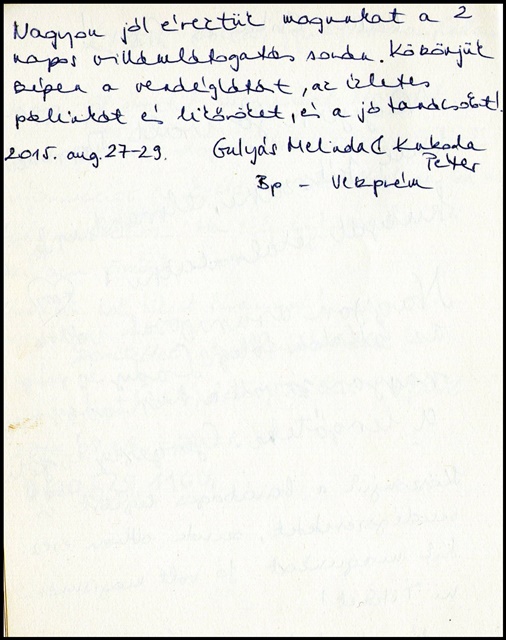 Nagyon jól éreztük magunkat a 2
napos villámlátogatás során. Köszönjük
szépen a vendéglátást, az ízletes
pálinkát és likőröket, és a jó tanácsokat!
2015. aug. 27-29. Gulyás Melinda &
Péter
Bp - Veszprém